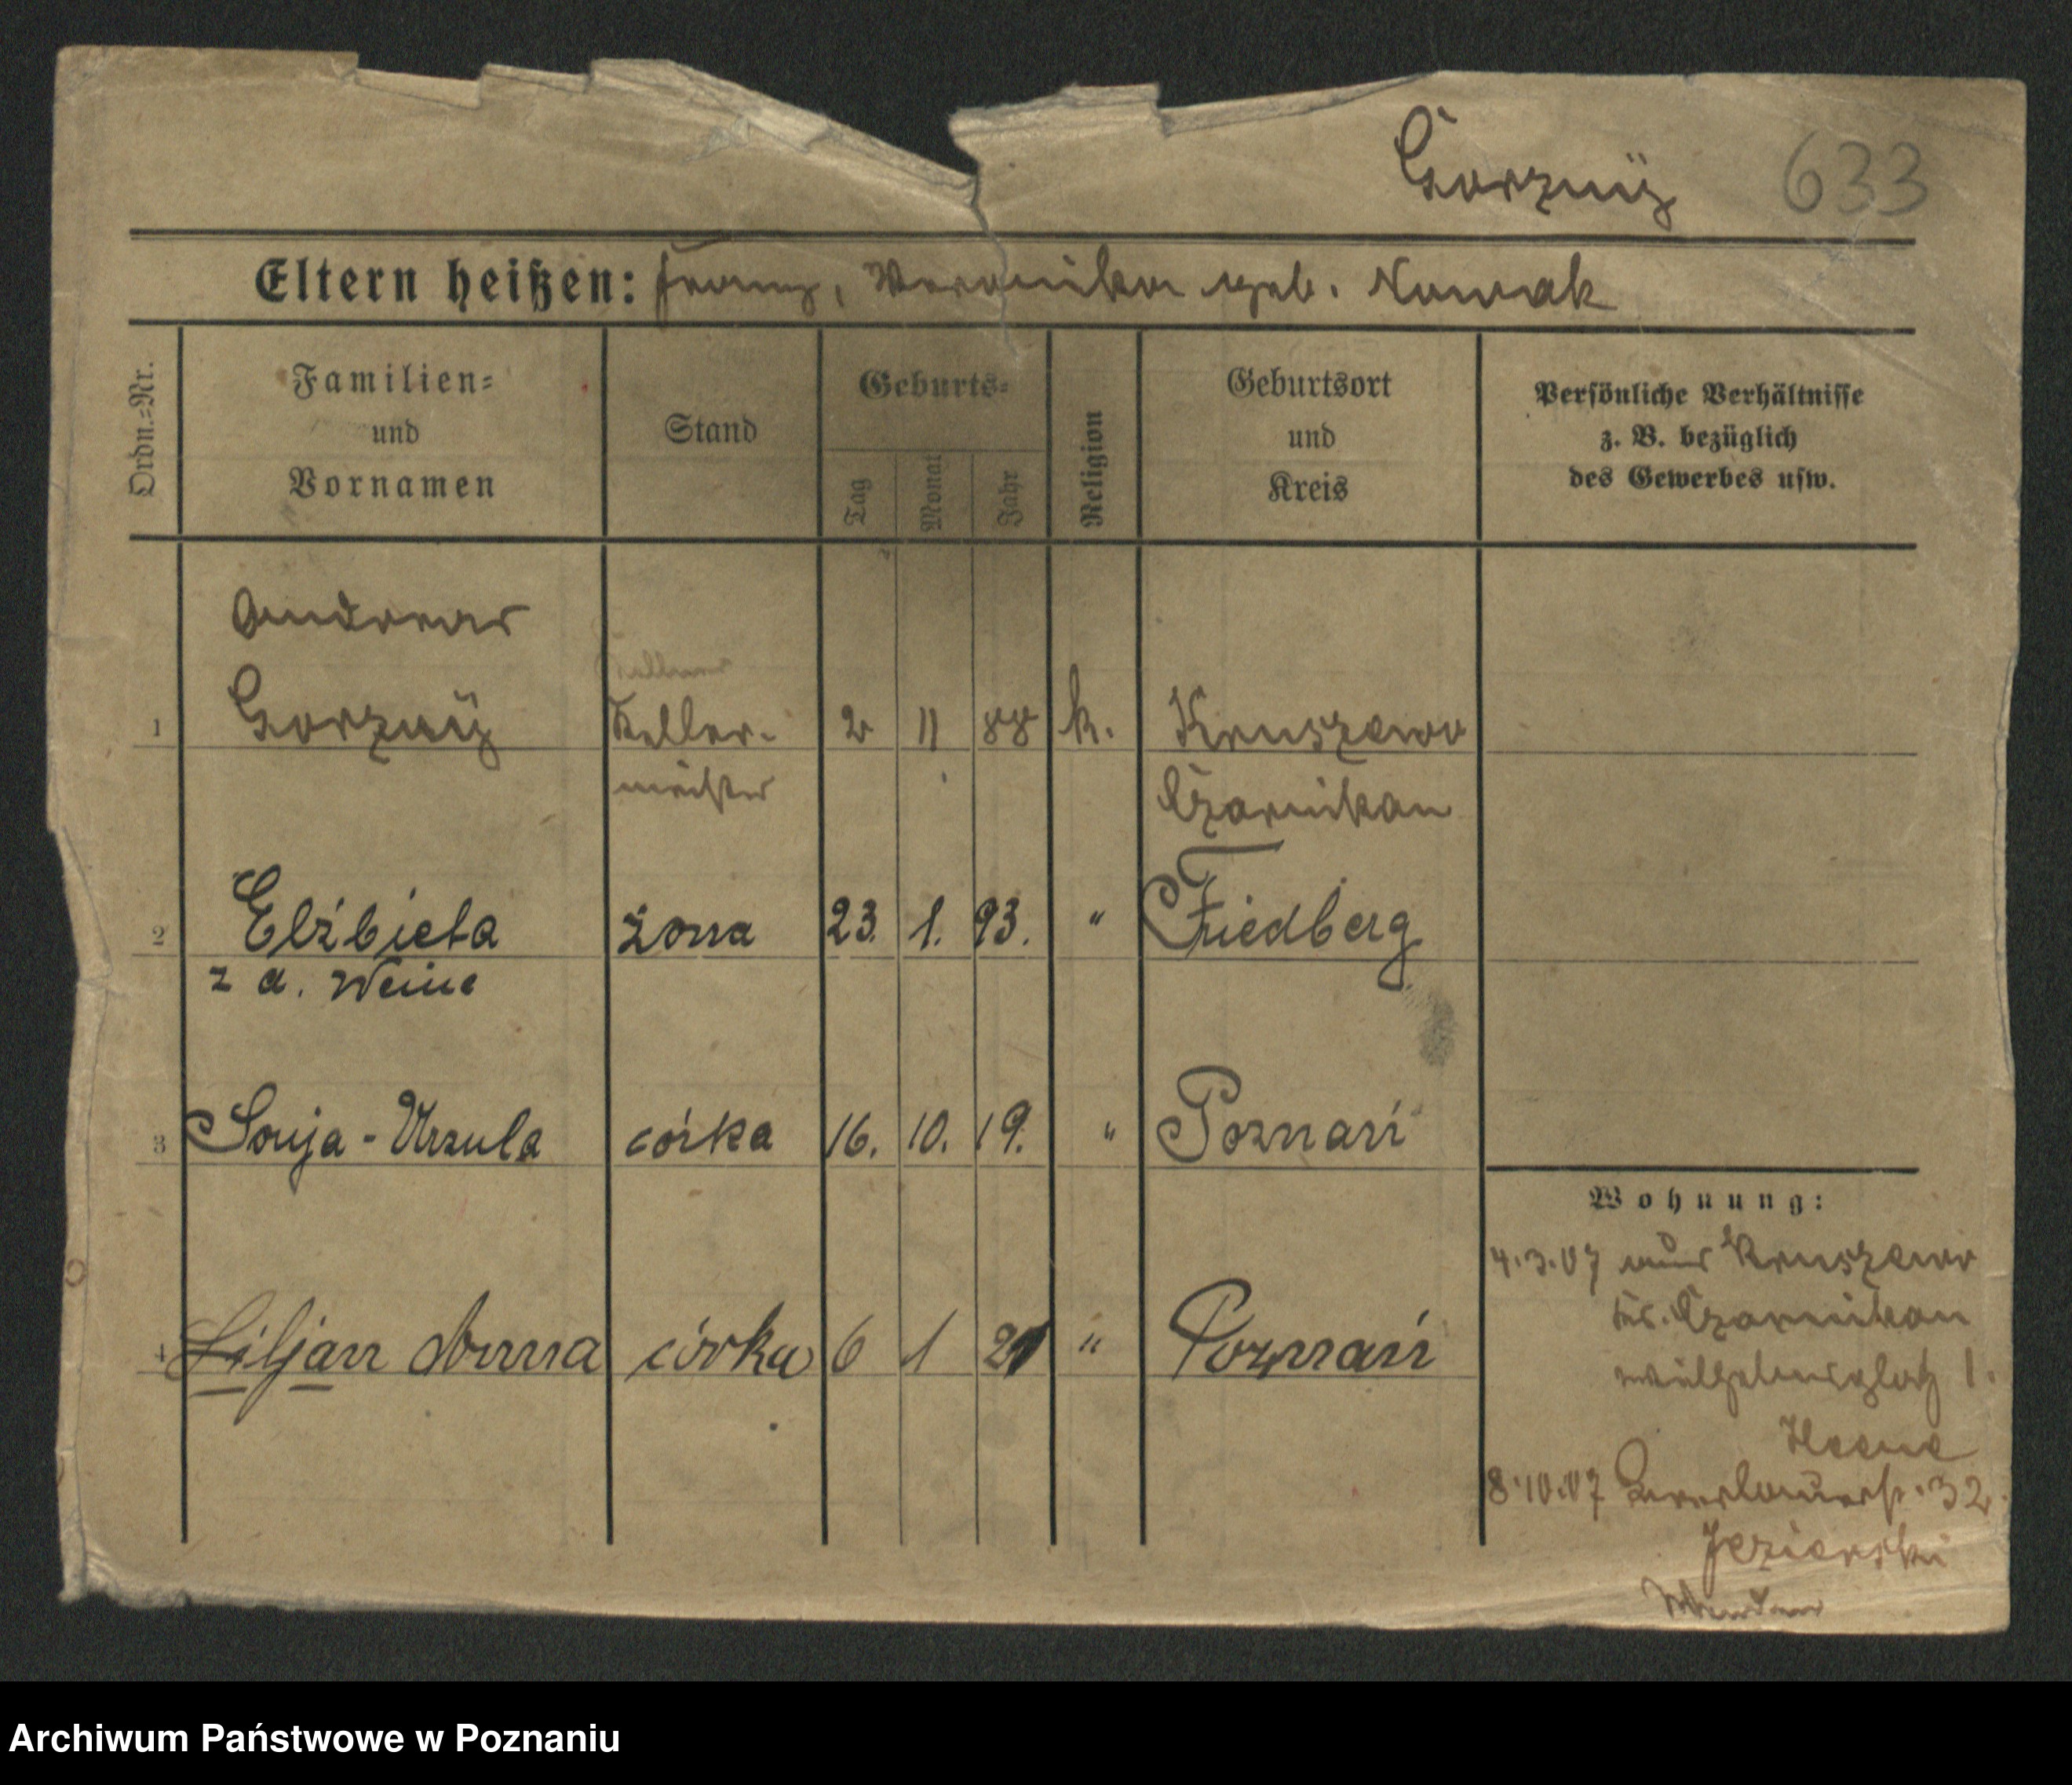 Gorzny 633
Eltern heißen: Franz, Veronika geb. Nowak
Ordn.=Nr.
Familien=
und
Vornamen
Stand
Geburts=
Tag
Monat
Jahr
Religion
Geburtsort
und
Kreis
Persönliche Verhältnisse
z. B. bezüglich
des Gewerbes usw.
Andreas
Kellner
1 Gorzny Keller- 2 11 88 k. Kruszewo
meister Czarnikau
2 Elżbieta żona 23. 1. 93. " Friedberg
z d. Weine
3 Sonja - Urzula córka 16. 10. 19. " Poznań
Wohnung:
4.3.07 aus Kruszewo
Kr. Czarnikau
4 Liljan Anna córka 6 1 21 " Poznań
Wilhelmsplatz 1.
8.10.07 Breslauerst. 32
Jezierski